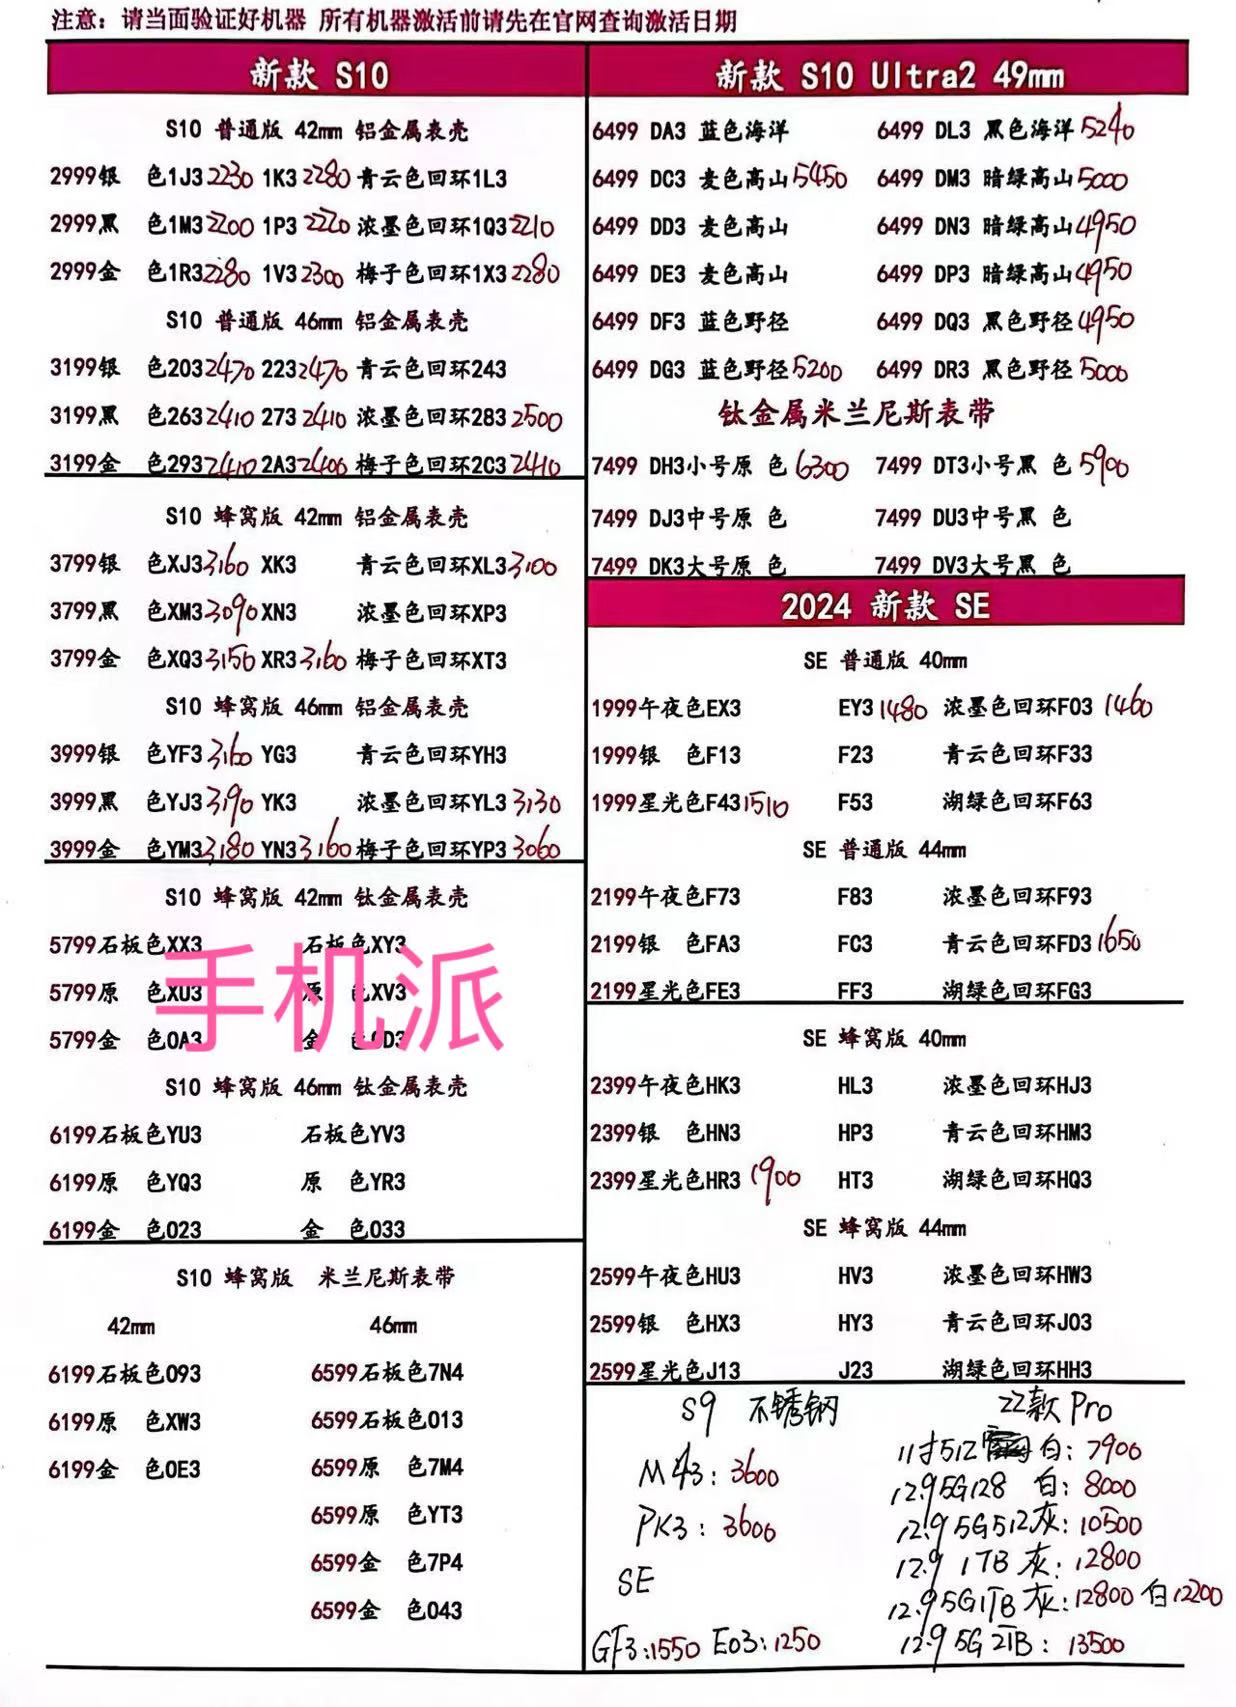 注意: 请当面验证好机器 所有机器激活前请先在官网查询激活日期
新款 S10
S10 普通版 42mm 铝金属表壳
2999银 色1J3 2230 1K3 2280 青云色回环1L3
2999黑 色1M3 2200 1P3 2220 浓墨色回环1Q3 2210
2999金 色1R3 2280 1V3 2300 梅子色回环1X3 2280
S10 普通版 46mm 铝金属表壳
3199银 色203 2470 223 2470 青云色回环243
3199黑 色263 2410 273 2410 浓墨色回环283 2500
3199金 色293 2410 2A3 2400 梅子色回环2C3 2410
S10 蜂窝版 42mm 铝金属表壳
3799银 色XJ3 3160 XK3 青云色回环XL3 3100
3799黑 色XM3 3090 XN3 浓墨色回环XP3
3799金 色XQ3 3150 XR3 3160 梅子色回环XT3
S10 蜂窝版 46mm 铝金属表壳
3999银 色YF3 3160 YG3 青云色回环YH3
3999黑 色YJ3 3190 YK3 浓墨色回环YL3 3130
3999金 色YM3 3180 YN3 3160 梅子色回环YP3 3060
S10 蜂窝版 42mm 钛金属表壳
5799石板色XX3 石板色XY3
5799原 色XU3 原 色XV3
5799金 色0A3 金 色0D3
手机派
S10 蜂窝版 46mm 钛金属表壳
6199石板色YU3 石板色YV3
6199原 色YQ3 原 色YR3
6199金 色023 金 色033
S10 蜂窝版 米兰尼斯表带
42mm 46mm
6199石板色093 6599石板色7N4
6199原 色XW3 6599石板色013
6199金 色0E3 6599原 色7M4
6599原 色YT3
6599金 色7P4
6599金 色043
新款 S10 Ultra2 49mm
6499 DA3 蓝色海洋 6499 DL3 黑色海洋 5240
6499 DC3 麦色高山 5450 6499 DM3 暗绿高山 5000
6499 DD3 麦色高山 6499 DN3 暗绿高山 4950
6499 DE3 麦色高山 6499 DP3 暗绿高山 4950
6499 DF3 蓝色野径 6499 DQ3 黑色野径 4950
6499 DG3 蓝色野径 5200 6499 DR3 黑色野径 5000
钛金属米兰尼斯表带
7499 DH3小号原 色 6300 7499 DT3小号黑 色 5900
7499 DJ3中号原 色 7499 DU3中号黑 色
7499 DK3大号原 色 7499 DV3大号黑 色
2024 新款 SE
SE 普通版 40mm
1999午夜色EX3 EY3 1480 浓墨色回环F03 1460
1999银 色F13 F23 青云色回环F33
1999星光色F43 1510 F53 湖绿色回环F63
SE 普通版 44mm
2199午夜色F73 F83 浓墨色回环F93
2199银 色FA3 FC3 青云色回环FD3 1650
2199星光色FE3 FF3 湖绿色回环FG3
SE 蜂窝版 40mm
2399午夜色HK3 HL3 浓墨色回环HJ3
2399银 色HN3 HP3 青云色回环HM3
2399星光色HR3 1900 HT3 湖绿色回环HQ3
SE 蜂窝版 44mm
2599午夜色HU3 HV3 浓墨色回环HW3
2599银 色HX3 HY3 青云色回环J03
2599星光色J13 J23 湖绿色回环HH3
S9 不锈钢
M43: 3600
PK3: 3600
SE
GF3:1550 E03:1250
22款 Pro
11寸512 白: 7900
12.9 5G128 白: 8000
12.9 5G512灰: 10500
12.9 1TB 灰: 12800
12.9 5G1TB 灰: 12800 白12200
12.9 5G 2TB: 13500